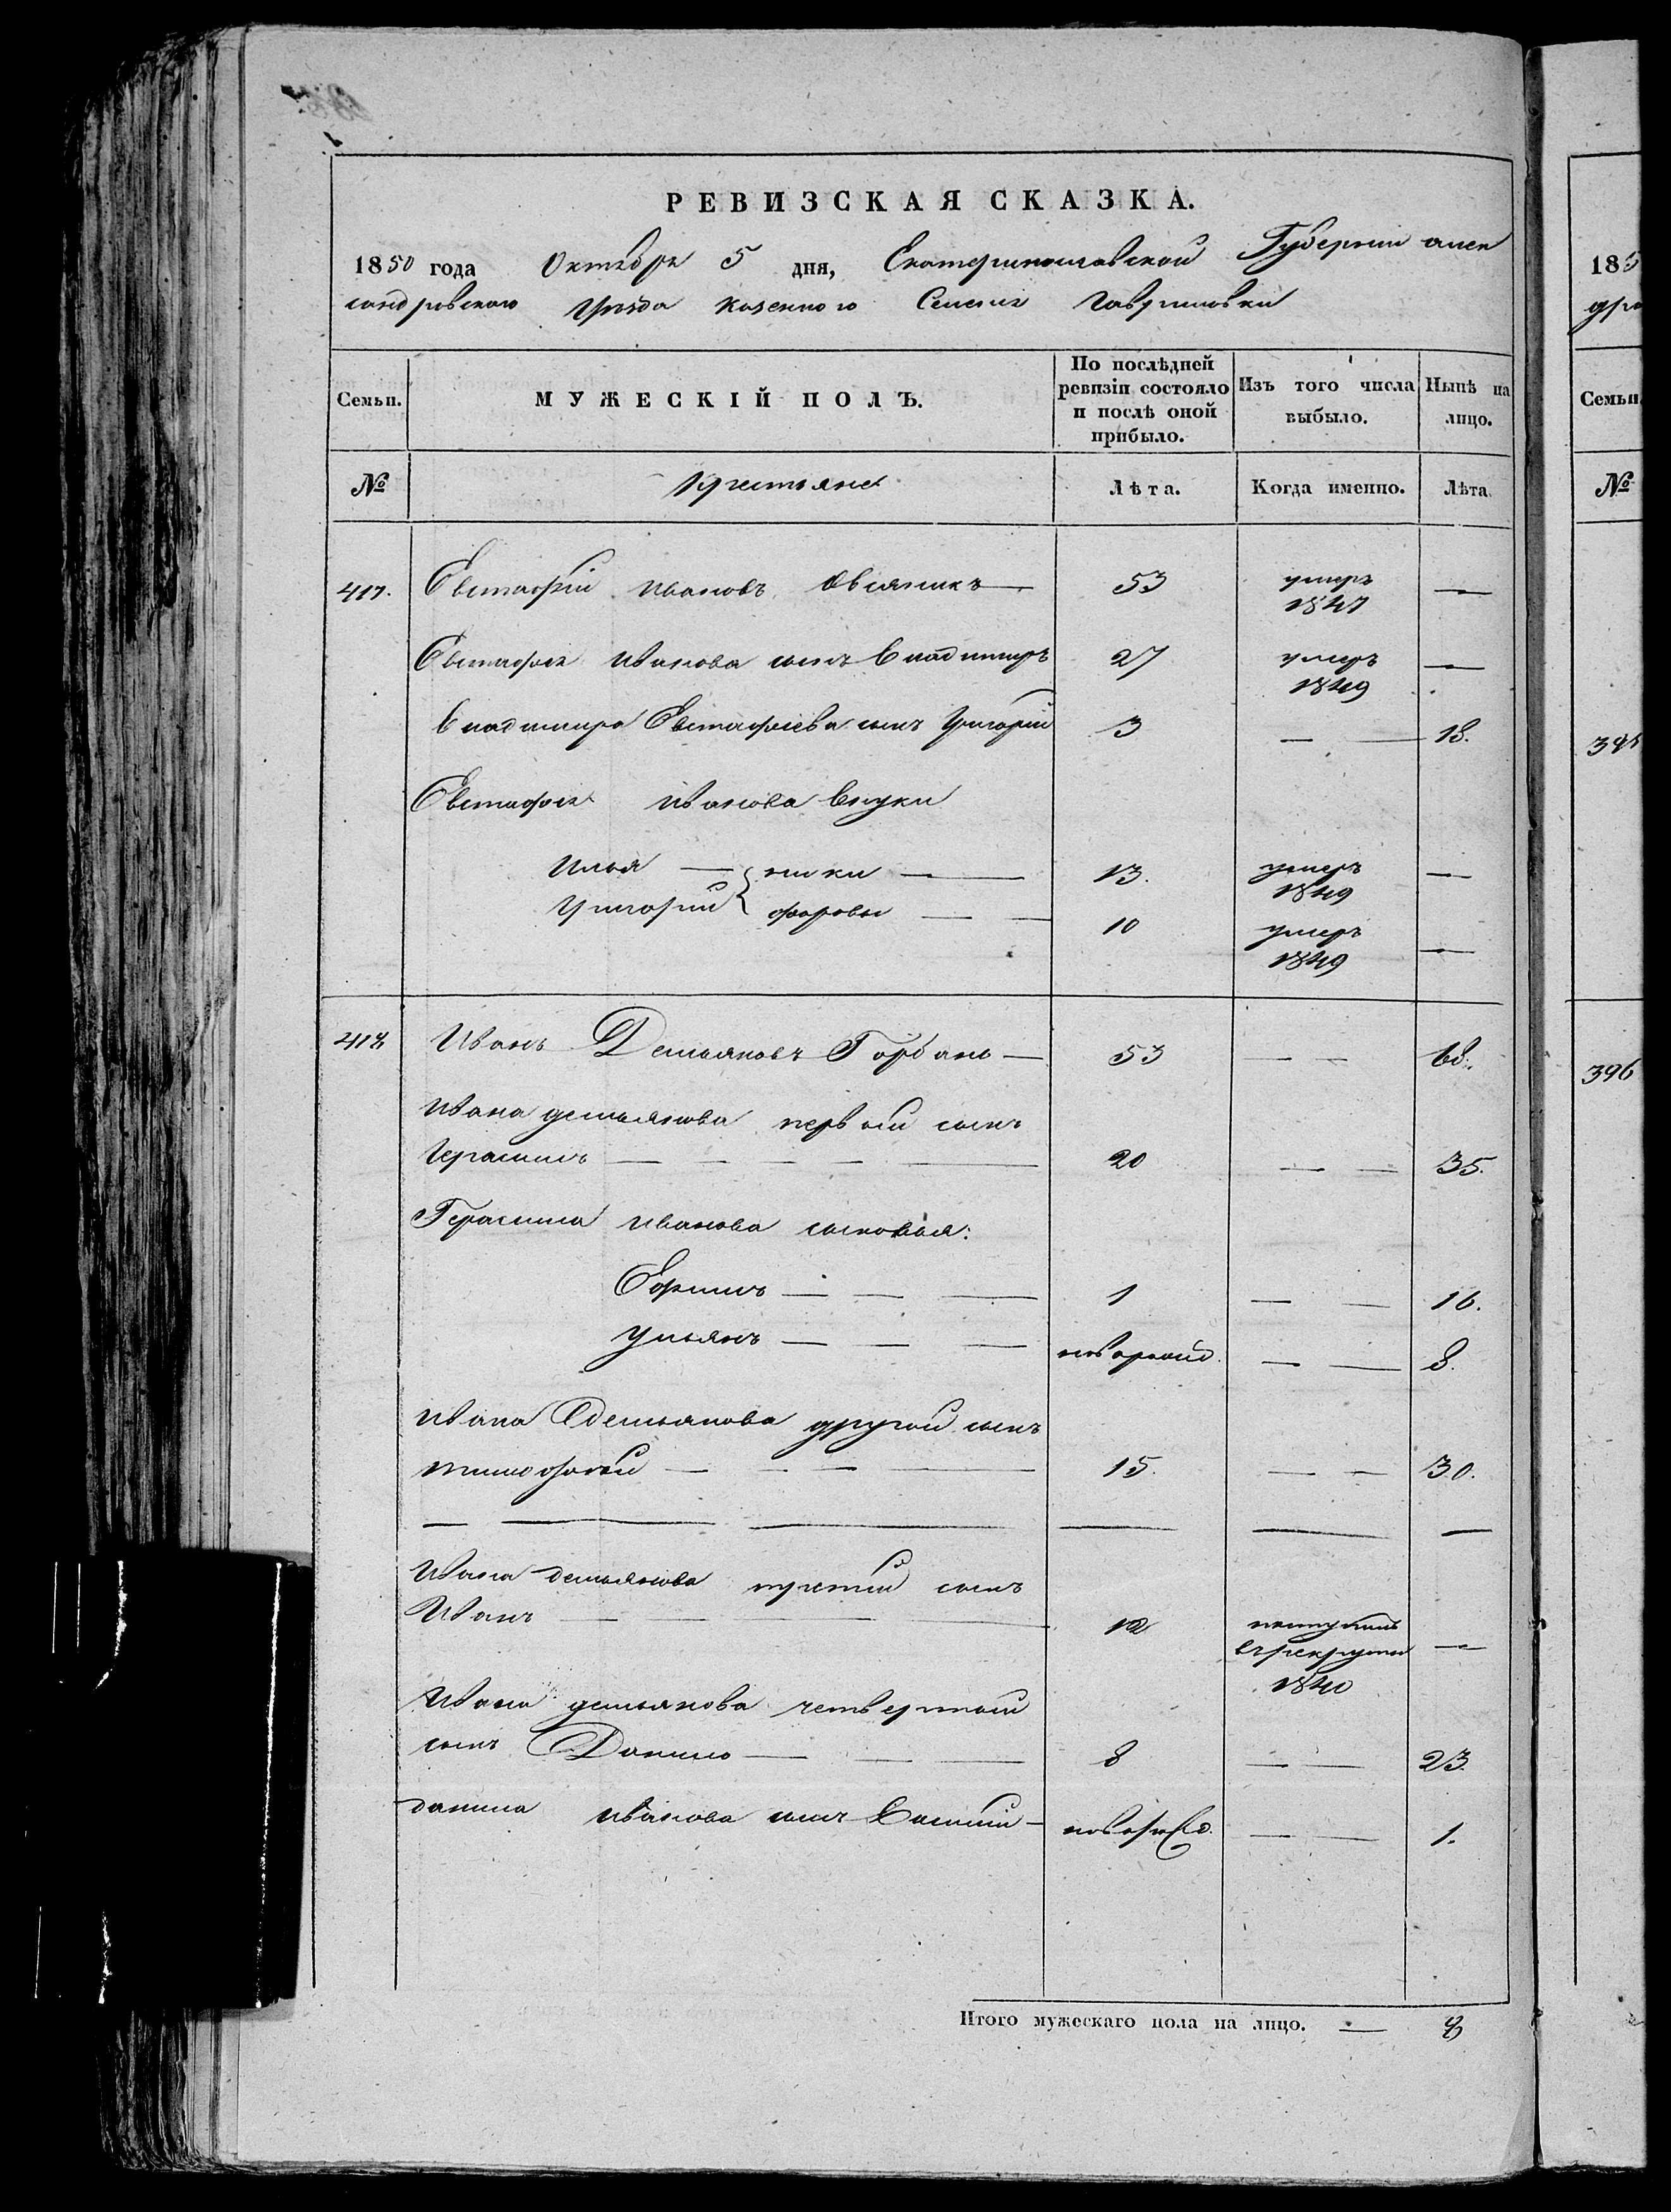 РЕВИЗСКАЯ СКАЗКА.
1850 года Октября 5 дня, Екатеринославской Губернии алек
сандровского уезда казенного Селения Гавриловки
Семьи. МУЖЕСКІЙ ПОЛЪ. По послѣдней ревизіи состояло и послѣ оной прибыло. Изъ того числа выбыло. Нынѣ на лицо.
№ Крестьяне Лѣта. Когда именно. Лѣта.
417. Евстафій Ивановъ Овсяникъ — 53 умеръ 1847 —
Евстафія Иванова сынъ Владимиръ 27 умеръ 1849 —
Владимира Евстафіева сынъ Григорій 3 — — 18.
Евстафія Иванова внуки
Илья — } ники — 13. умеръ 1849 —
Григорий } форовы — — 10 умеръ 1849 —
418 Иванъ Демьяновъ Горбань — 53 — — 68.
Ивана демьянова первой сынъ
Герасимъ — — — — — 20 — — 35.
Герасима Иванова сыновья:
Ефимъ — — — 1 — — 16.
Ульянъ — — — новорожд. — — 8.
Ивана Демьянова другой сынъ
тимофей — — — — 15. — — 30.
Ивана демьянова третий сынъ
Иванъ — — — — 12 поступилъ въ рекруты 1840 —
Ивана демьянова четвертой
сынъ Данило — — — 8 — — 23.
данила Иванова сынъ Василий — новорожд. — — 1.
Итого мужескаго пола на лицо. —
395
396
185
дро
Семьи.
№